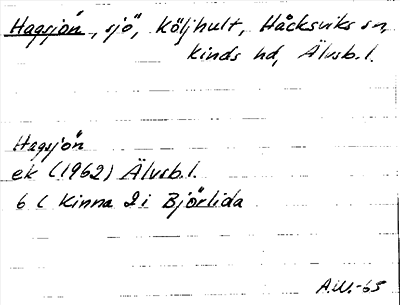 Hagsjön, sjö, Köljhult, Håcksviks sn,
Kinds hd, Älvsb.l.
Hagsjön
ek (1962) Älvsb.l.
6 C Kinna 2 i Björlida
A.W.-65